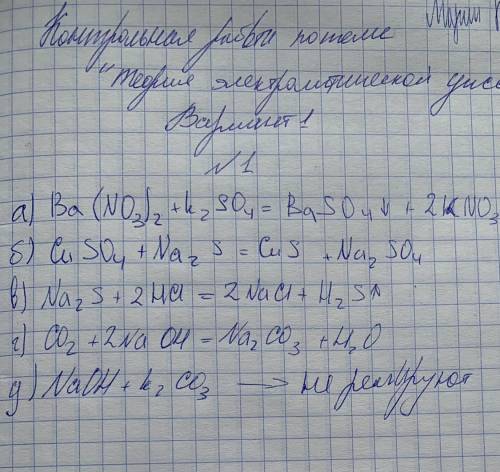 Контрольная работа по теме
"Теория электролитической дисс
Вариант 1
№1
а) Ba(NO₃)₂ + K₂SO₄ = BaSO₄↓ + 2KNO₃
б) CuSO₄ + Na₂S = CuS + Na₂SO₄
в) Na₂S + 2HCl = 2NaCl + H₂S↑
г) CO₂ + 2NaOH = Na₂CO₃ + H₂O
д) NaOH + K₂CO₃ → не реагируют